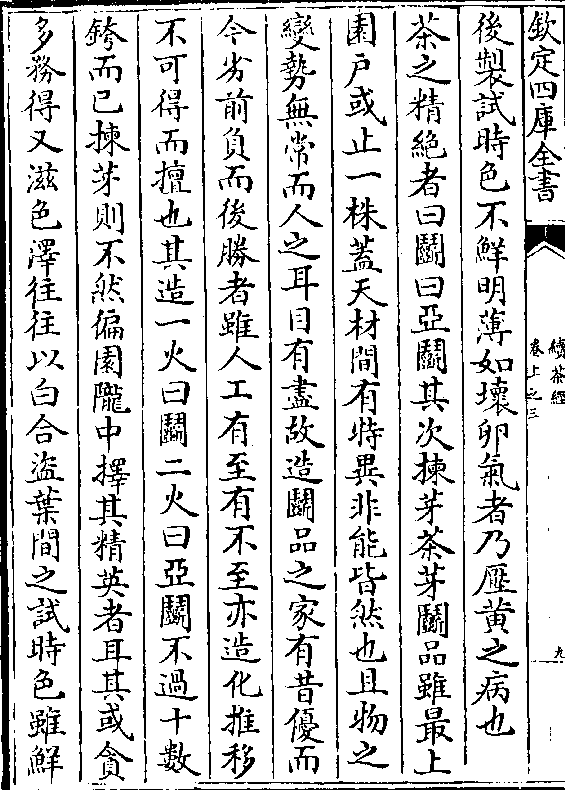 欽定四庫全書
續茶經
卷上之三
九
後製試時色不鮮明薄如壞卵氣者乃壓黄之病也
茶之精絶者曰鬭曰亞鬭其次揀芽茶芽鬭品雖最上
園户或止一株蓋天材間有特異非能皆然也且物之
變勢無常而人之耳目有盡故造鬭品之家有昔優而
今劣前負而後勝者雖人工有至有不至亦造化推移
不可得而擅也其造一火曰鬭二火曰亞鬭不過十數
銙而已揀芽則不然徧園隴中擇其精英者耳其或貪
多務得又滋色澤往往以白合盜葉間之試時色雖鮮